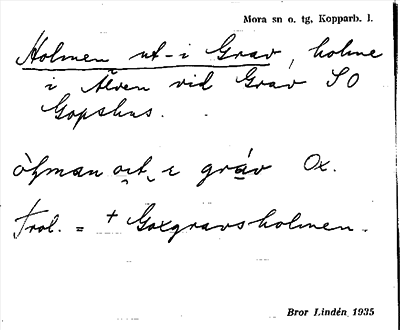 Mora sn o. tg. Kopparb. l.
Holmen ut i Grav, holme
i Älven vid Grav SO
Gopshus.
òłman ou̯t i gráv Ox.
Trol. = + Goxgravsholmen.
Bror Lindén 1935